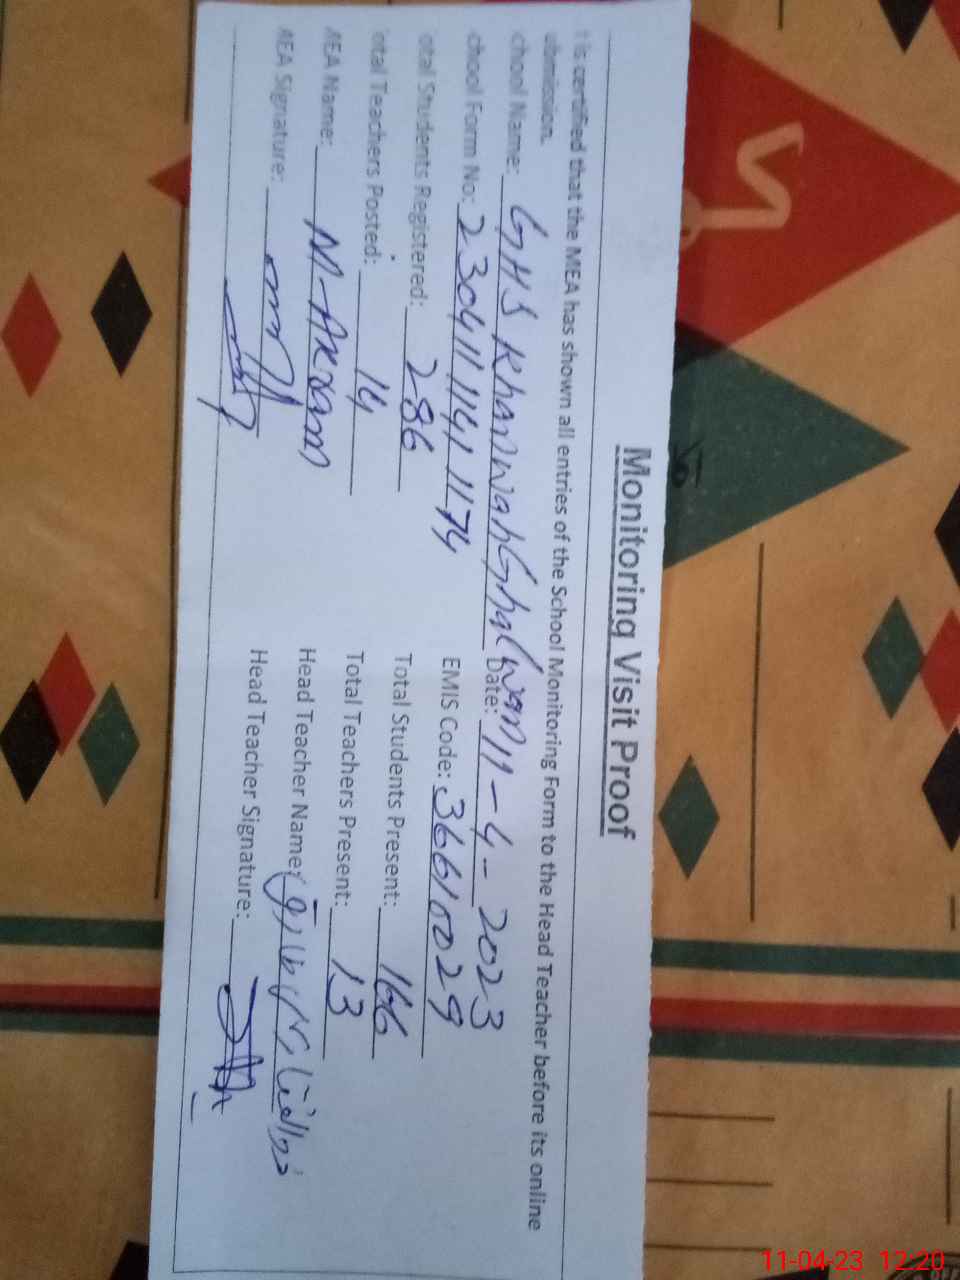 Monitoring Visit Proof
t is certified that the MEA has shown all entries of the School Monitoring Form to the Head Teacher before its online
ubmission.
chool Name: GHS Khanwah Ghalwan Date: 11-4-2023
chool Form No: 230411141174 EMIS Code: 36610029
otal Students Registered: 286 Total Students Present: 166
otal Teachers Posted: 14 Total Teachers Present: 13
AEA Name: M-Akram Head Teacher Name:
AEA Signature: Head Teacher Signature:
11-04-23 12:20